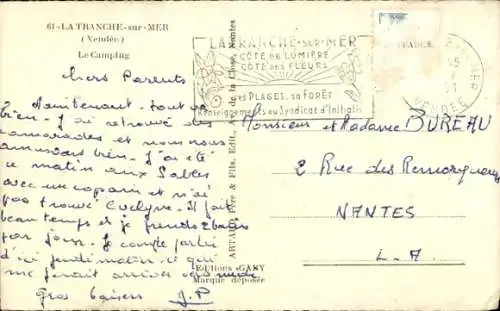 61-LA TRANCHE-sur-MER
(Vendée)
Le Camping
Chers Parents
Maintenant tout va
bien. J'ai retrouvé des
camarades et nous nous
amusons bien. J'ai été
ce matin aux Sables
avec un copain et n'ai
pas trouvé Evelyne. Il fait
beau temps et je prends 2 bains
par jour. Je compte partir
d'ici jeudi matin ce qui
me ferait arriver
Gros baisers J.P
ARTAUD Père & Fils, Edit., de la Close, Nantes
Editions GABY
Marque déposée
LA TRANCHE-SUR-MER
CÔTE DE LUMIÈRE
CÔTE DES FLEURS
SES PLAGES, SA FORÊT
Renseignements au Syndicat d'Initiative
FRANCE
VENDEE
Monsieur et Madame BUREAU
2 Rue des Remorqueurs
NANTES
L. A.